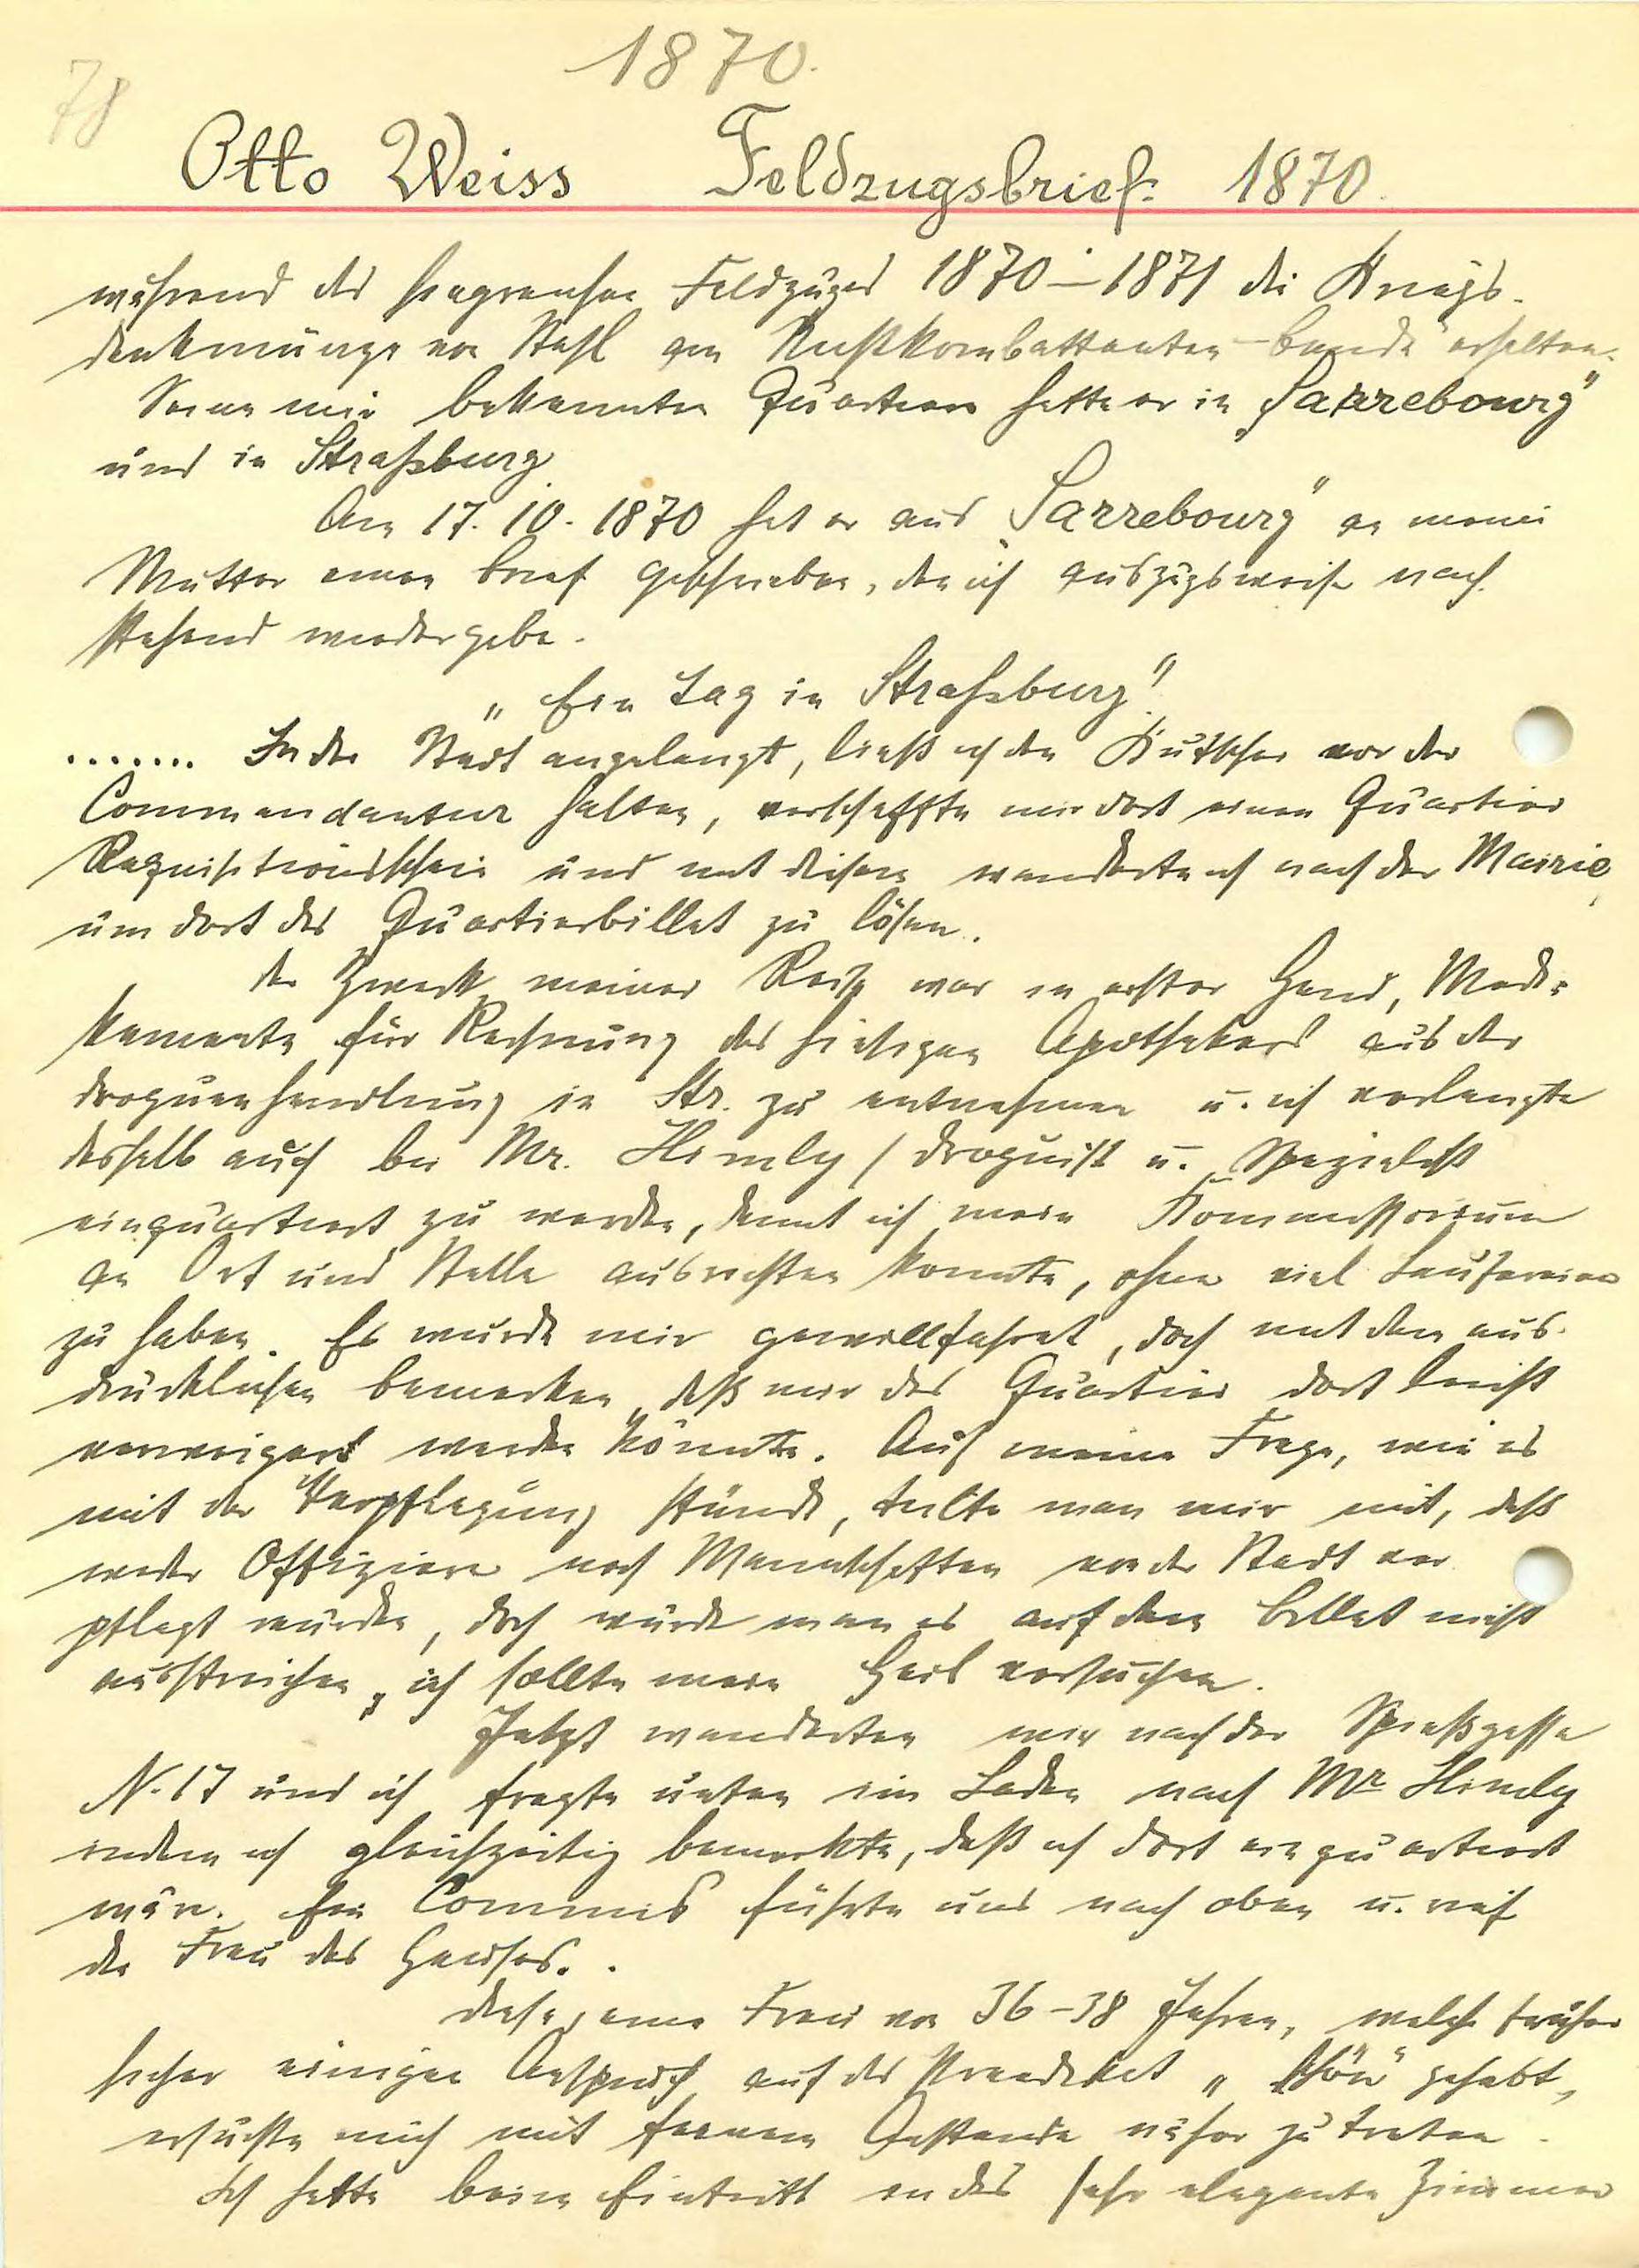 1870.
78
Otto Weiss Feldzugsbrief 1870.
während des siegreichen Feldzuges 1870–1871 die Kriegs-
denkmünze von Stahl am Nichtkombattanten-bande erhalten.
Seine mir bekannten Quartiere hatte er in „Sarrebourg“
und in Straßburg.
Am 17. 10. 1870 hat er aus „Sarrebourg“ an meine
Mutter einen Brief geschrieben, den ich auszugsweise nach-
stehend wiedergebe.
„Ein Tag in Straßburg“!
....... In der Stadt angelangt, ließ ich den Kutscher vor der
Commandantur halten, verschaffte mir dort einen Quartier
Requisitionsschein und mit diesem wanderte ich nach der Mairie,
um dort das Quartierbillet zu lösen.
Der Zweck meiner Reise war in erster Hand, Medi-
kamente für Rechnung des hiesigen Apothekers aus der
Droguenhandlung in Str. zu entnehmen u. ich verlangte
deshalb auch bei Mr. Himly / Droguist u. Spezialist
einquartiert zu werden, damit ich mein Kommissorium
an Ort und Stelle ausrichten konnte, ohne viel Lauferein
zu haben. Es wurde mir gewillfahret, doch mit dem aus-
drücklichen Bemerken, daß mir das Quartier dort leicht
verweigert werden könnte. Auf meine Frage, wie es
mit der Verpflegung stünde, teilte man mir mit, daß
weder Offiziere noch Mannschaften von der Stadt ver-
pflegt würden, doch würde man es auf dem Billet nicht
ausstreichen, ich sollte mein Heil versuchen.
Jetzt wanderten wir nach der Spießgasse
N. 17 und ich fragte unten im Laden nach Mr Himly
indem ich gleichzeitig bemerkte, daß ich dort einquartiert
wäre. Ein Commis führte uns nach oben u. rief
die Frau des Hauses.
Diese, eine Frau von 36–38 Jahren, welche früher
sicher einigen Anspruch auf das Praedikat „schön“ gehabt,
ersuchte mich mit feinem Anstande näher zu treten.
Ich hatte beim Eintritt in das sehr elegante Zimmer